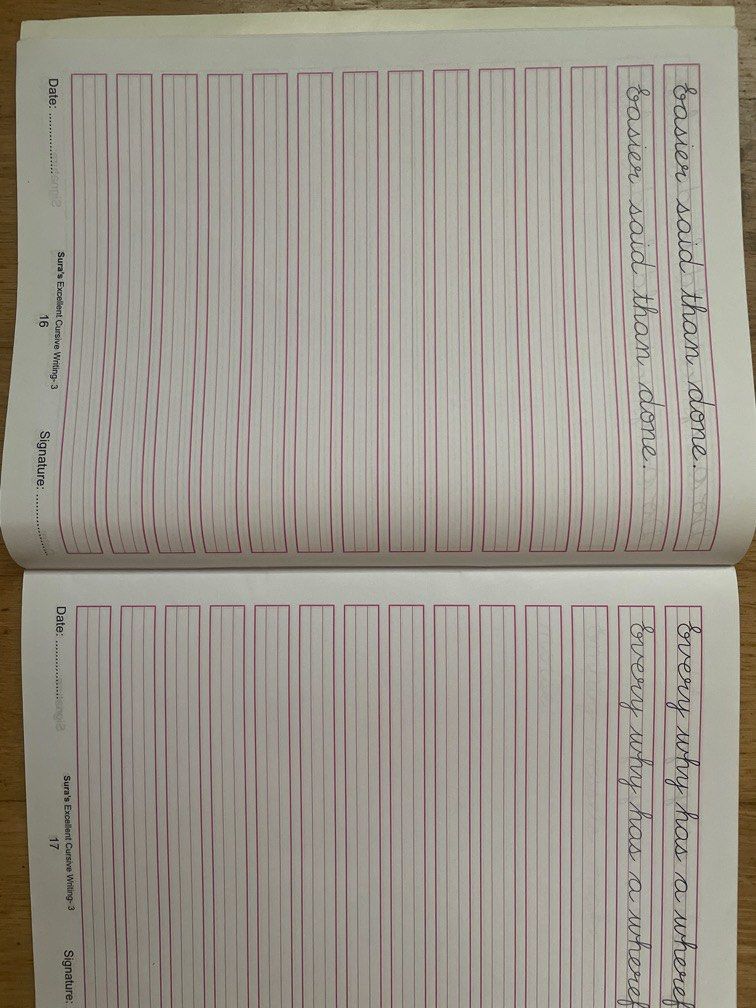 Easier said than done.
Easier said than done.
Date: ....................
Sura's Excellent Cursive Writing-3
16
Signature: ....................
Every why has a wheref
Every why has a wheref
Date: ....................
Sura's Excellent Cursive Writing-3
17
Signature: